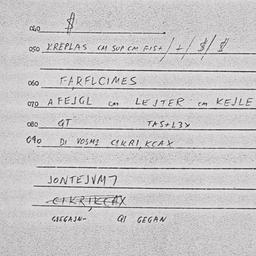 040 $
050 KREPLAS CM SUP CM FIS+/+/$/$
060 FARFLCIMES
070 AFEJGL CM LEJTER CM KEJLE
080 GT TAS+L3X
090 DI VOSMI CIKRI,KCAX
JONTEJVM7
CIKRIKCAX
GJEGAJN- QI GEGAN